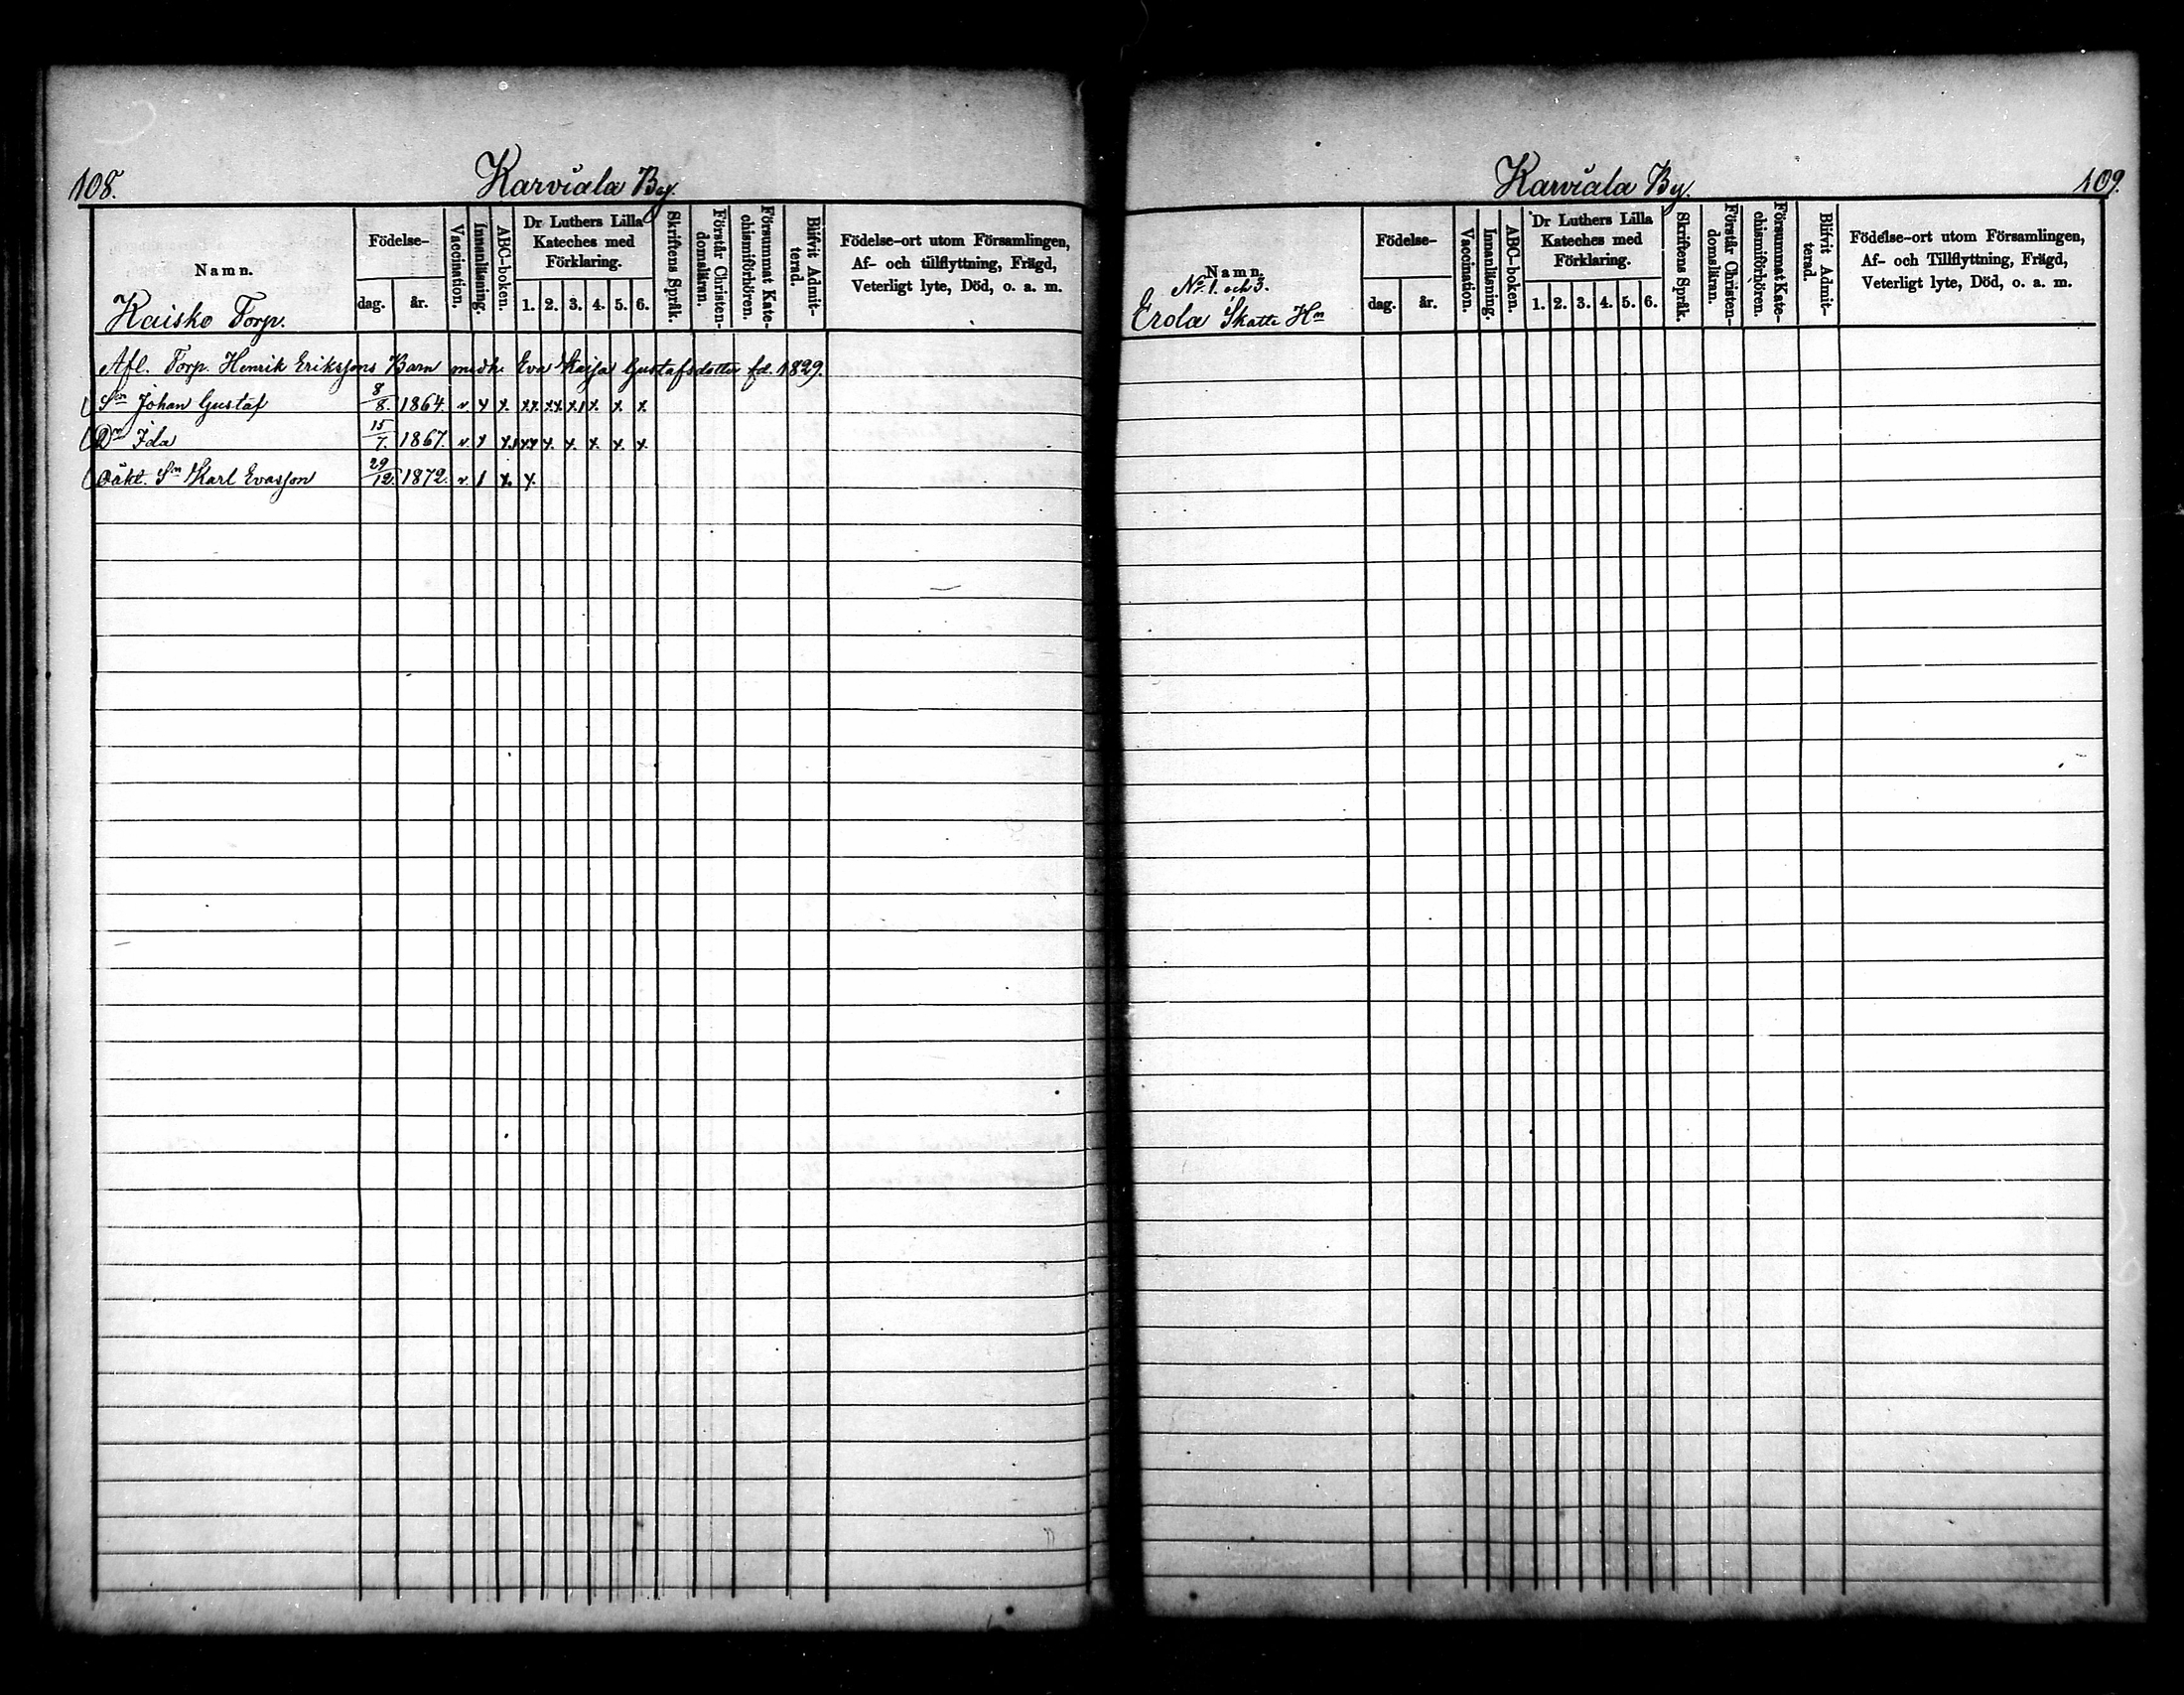 108.
Karviala By.
Namn.
Kaisko Torp.
Födelse-
dag.
år.
Vaccination.
Innanläsning.
ABC-boken.
Dr Luthers Lilla
Kateches med
Förklaring.
1. 2. 3. 4. 5. 6.
Skriftens Språk.
Förstår Christen-
domsläran.
Försummat Kate-
chismiförhören.
Blifvit Admit-
terad.
Födelse-ort utom Församlingen,
Af- och tillflyttning, Frägd,
Veterligt lyte, Död, o. a. m.
Afl. Torp. Henrik Erikssons Barn med h. Eva Kajsa Gustafsdotter fd. 1829.
Sn Johan Gustaf 8/8. 1864. v x x. xx xx x1 x. x. x.
Dr Ida 15/7. 1867. v x x1 xx x. x. x. x. x.
Oäkt. Sn Karl Evasson 29/12. 1872. v 1 x. x
109.
Karviala By.
Namn.
No 1. och 3.
Erola Skatte Hn
Födelse-
dag.
år.
Vaccination.
Innanläsning.
ABC-boken.
Dr Luthers Lilla
Kateches med
Förklaring.
1. 2. 3. 4. 5. 6.
Skriftens Språk.
Förstår Christen-
domsläran.
Försummat Kate-
chismiförhören.
Blifvit Admit-
terad.
Födelse-ort utom Församlingen,
Af- och Tillflyttning, Frägd,
Veterligt lyte, Död, o. a. m.